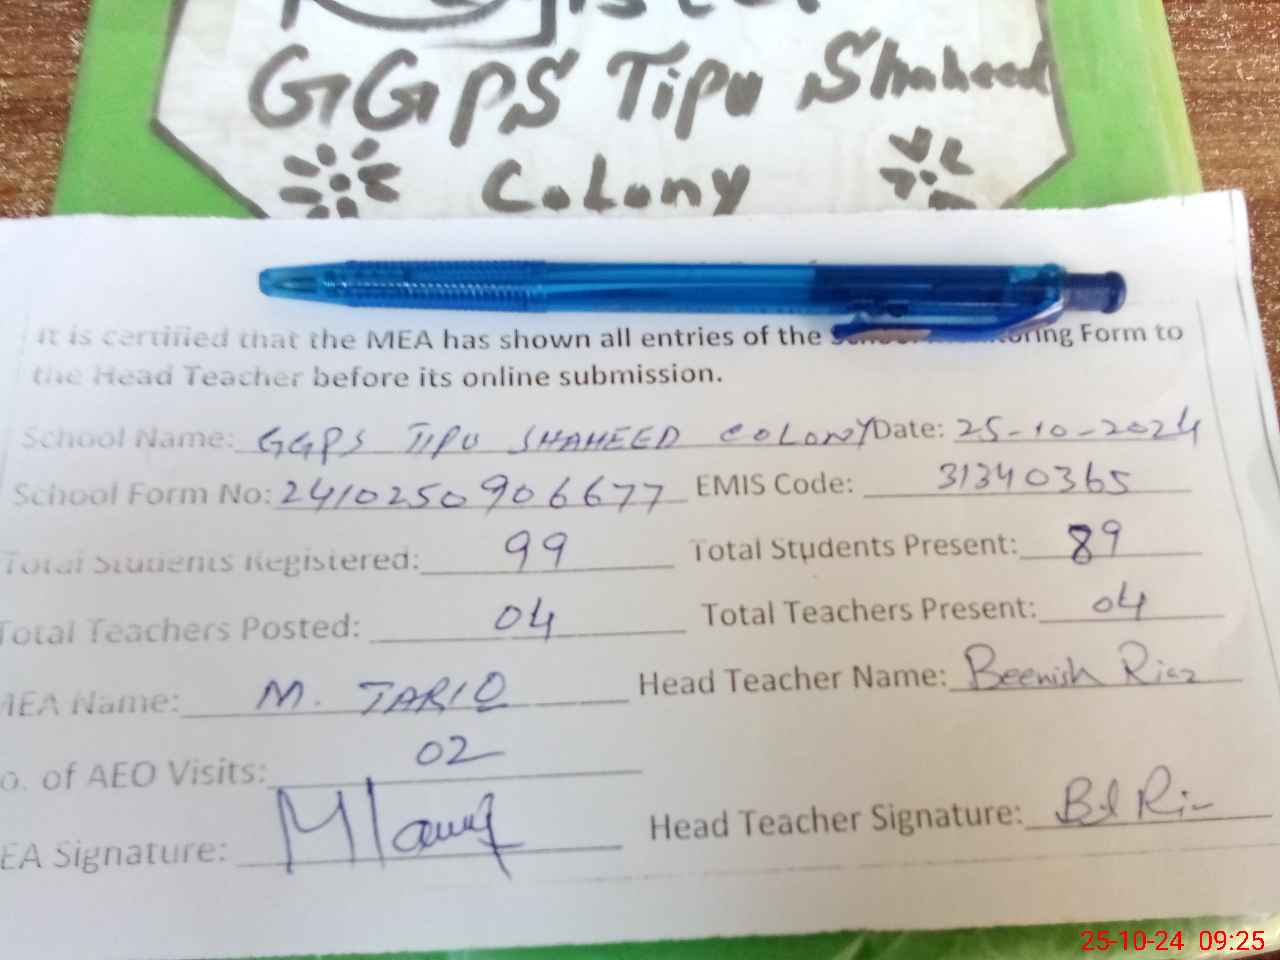 Register
GGPS Tipu Shaheed
Colony
It is certified that the MEA has shown all entries of the School Monitoring Form to
the Head Teacher before its online submission.
School Name: GGPS TIPU SHAHEED COLONY Date: 25-10-2024
School Form No: 2410250906677 EMIS Code: 31340365
Total Students Registered: 99 Total Students Present: 89
Total Teachers Posted: 04 Total Teachers Present: 04
MEA Name: M. TARIQ Head Teacher Name: Beenish Riaz
o. of AEO Visits: 02
EA Signature: Head Teacher Signature:
25-10-24 09:25